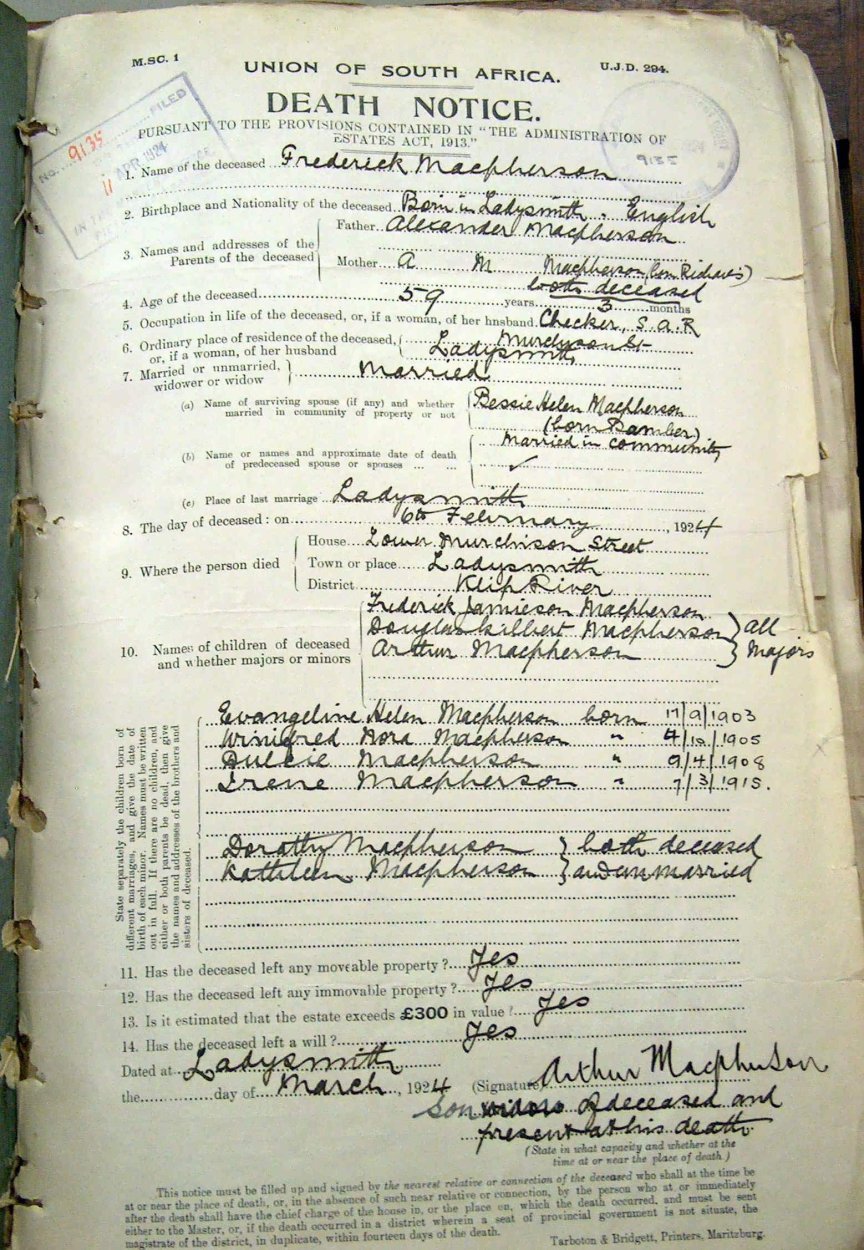 M.SC. 1
U.J.D. 294.
UNION OF SOUTH AFRICA.
DEATH NOTICE.
PURSUANT TO THE PROVISIONS CONTAINED IN "THE ADMINISTRATION OF
ESTATES ACT, 1913."
NO. 9135 FILED
11 APR 1924
9135
1. Name of the deceased Frederick Macpherson
2. Birthplace and Nationality of the deceased Born in Ladysmith. English
3. Names and addresses of the Parents of the deceased
Father Alexander Macpherson
Mother A M Macpherson (born
both deceased
4. Age of the deceased 59 years 3 months
5. Occupation in life of the deceased, or, if a woman, of her hnsband Checker, S.A.R
6. Ordinary place of residence of the deceased,
or, if a woman, of her husband
Ladysmith
7. Married or unmarried,
widower or widow
Married
(a) Name of surviving spouse (if any) and whether
married in community of property or not
Bessie Helen Macpherson
(born Bamber)
Married in community
(b) Name or names and approximate date of death
of predeceased spouse or spouses ... ...
✓
(c) Place of last marriage Ladysmith
8. The day of deceased : on 6th February, 1924
9. Where the person died
House Lower Murchison Street
Town or place Ladysmith
District Klip River
10. Names of children of deceased
and whether majors or minors
Frederick Jamieson Macpherson
Douglas Gilbert Macpherson
Arthur Macpherson
all
Majors
State separately the children born of
different marriages, and give the date of
birth of each minor. Names must be written
out in full. If there are no children, and
either or both parents be dead, then give
the names and addresses of the brothers and
sisters of deceased.
Evangeline Helen Macpherson born 17/9/1903
Winifred Nora Macpherson " 4/10/1905
Dulcie Macpherson " 9/4/1908
Irene Macpherson " 7/3/1915.
Dorothy Macpherson } both deceased
Kathleen Macpherson } and unmarried
11. Has the deceased left any moveable property ? Yes
12. Has the deceased left any immovable property ? Yes
13. Is it estimated that the estate exceeds £300 in value ? Yes
14. Has the deceased left a will ? Yes
Dated at Ladysmith
the day of March, 1924
(Signature) Arthur Macpherson
Son of deceased and
present at his death
(State in what capacity and whether at the
time at or near the place of death.)
This notice must be filled up and signed by the nearest relative or connection of the deceased who shall at the time be
at or near the place of death, or, in the absence of such near relative or connection, by the person who at or immediately
after the death shall have the chief charge of the house in, or the place on, which the death occurred, and must be sent
either to the Master, or, if the death occurred in a district wherein a seat of provincial government is not situate, the
magistrate of the district, in duplicate, within fourteen days of the death.
Tarboton & Bridgett, Printers, Maritzburg.